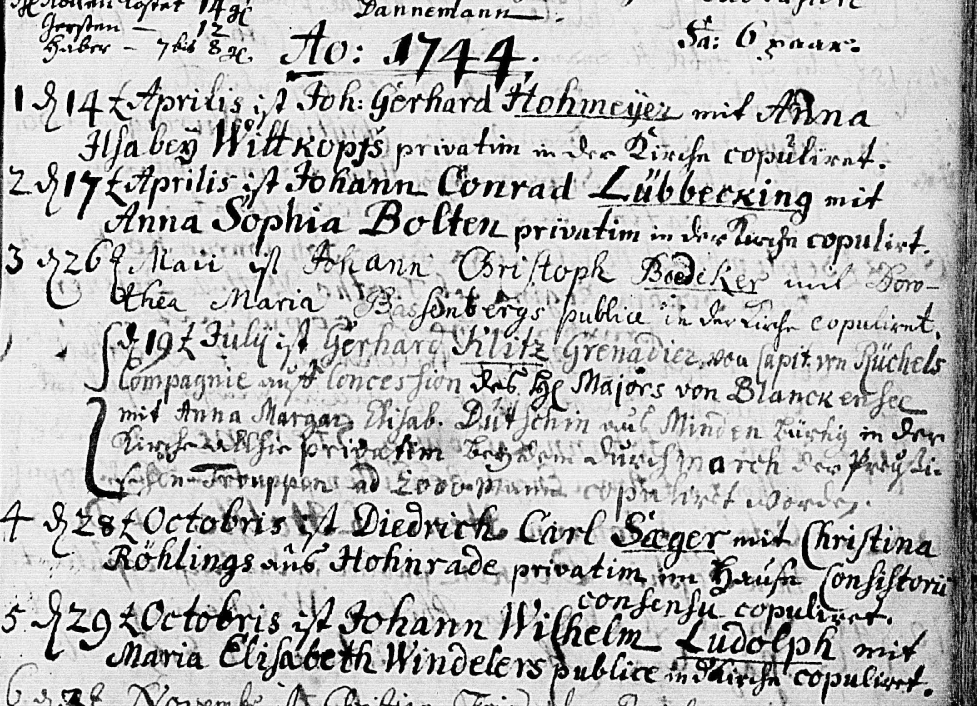 Gersten — 12
Haber — 7 bis 8 gl.
Dannemann.
Sa: 6 paar.
Ao: 1744.
1 d 14t Aprilis ist Joh: Gerhard Hohmeyer mit Anna
Ilsabey Wittkopfs privatim in der Kirche copuliret.
2 d 17t Aprilis ist Johann Conrad Lübbecking mit
Anna Sophia Bolten privatim in der Kirche copulirt.
3 d 26t Maii ist Johann Christoph Boedeker mit Doro-
thea Maria Bassenbergs publice in der Kirche copuliret.
d 19t July ist Gerhard Klitz Grenadier von Capit. von Rüchels
Compagnie auf Concession des H Majors von Blanckensee
mit Anna Margar. Elisab. Dütschin aus Minden bürtig in der
Kirche allhie privatim bey dem durchmarch der Preyßi-
schen Trouppen ad 2000 Mann copuliret worden.
4 d 28t Octobris ist Diedrich Carl Sæger mit Christina
Röhlings aus Hohnrade privatim im Hause Consistorii
consensu copuliret.
5 d 29t Octobris ist Johann Wilhelm Ludolph mit
Maria Elisabeth Windelers publice in d Kirche copuliret.